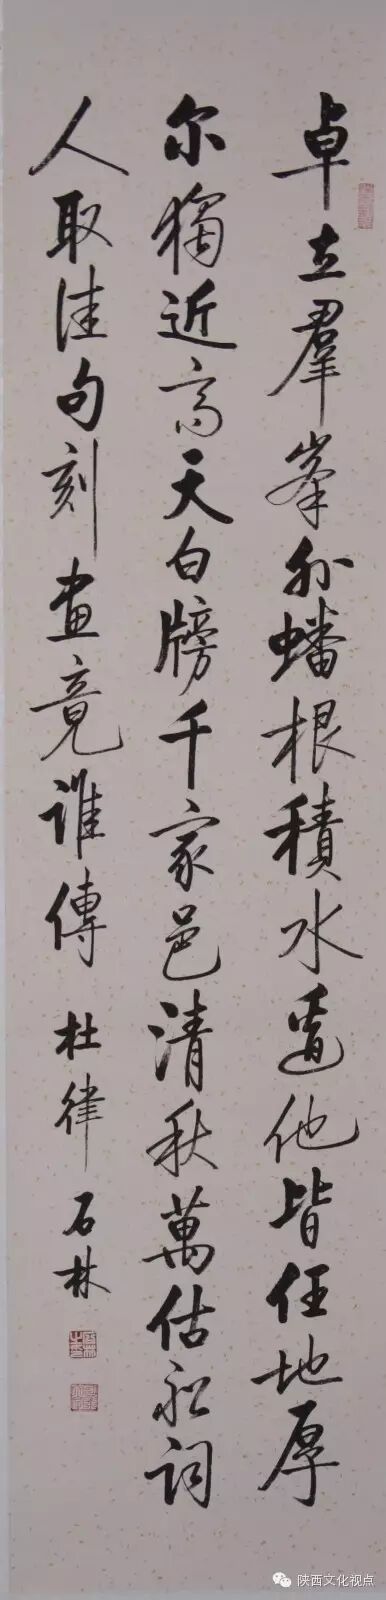 卓立羣峯外蟠根積水邊他皆任地厚
尔獨近高天白牓千家邑清秋萬估船詞
人取佳句刻畫竟誰傳 杜律 石林
陕西文化视点